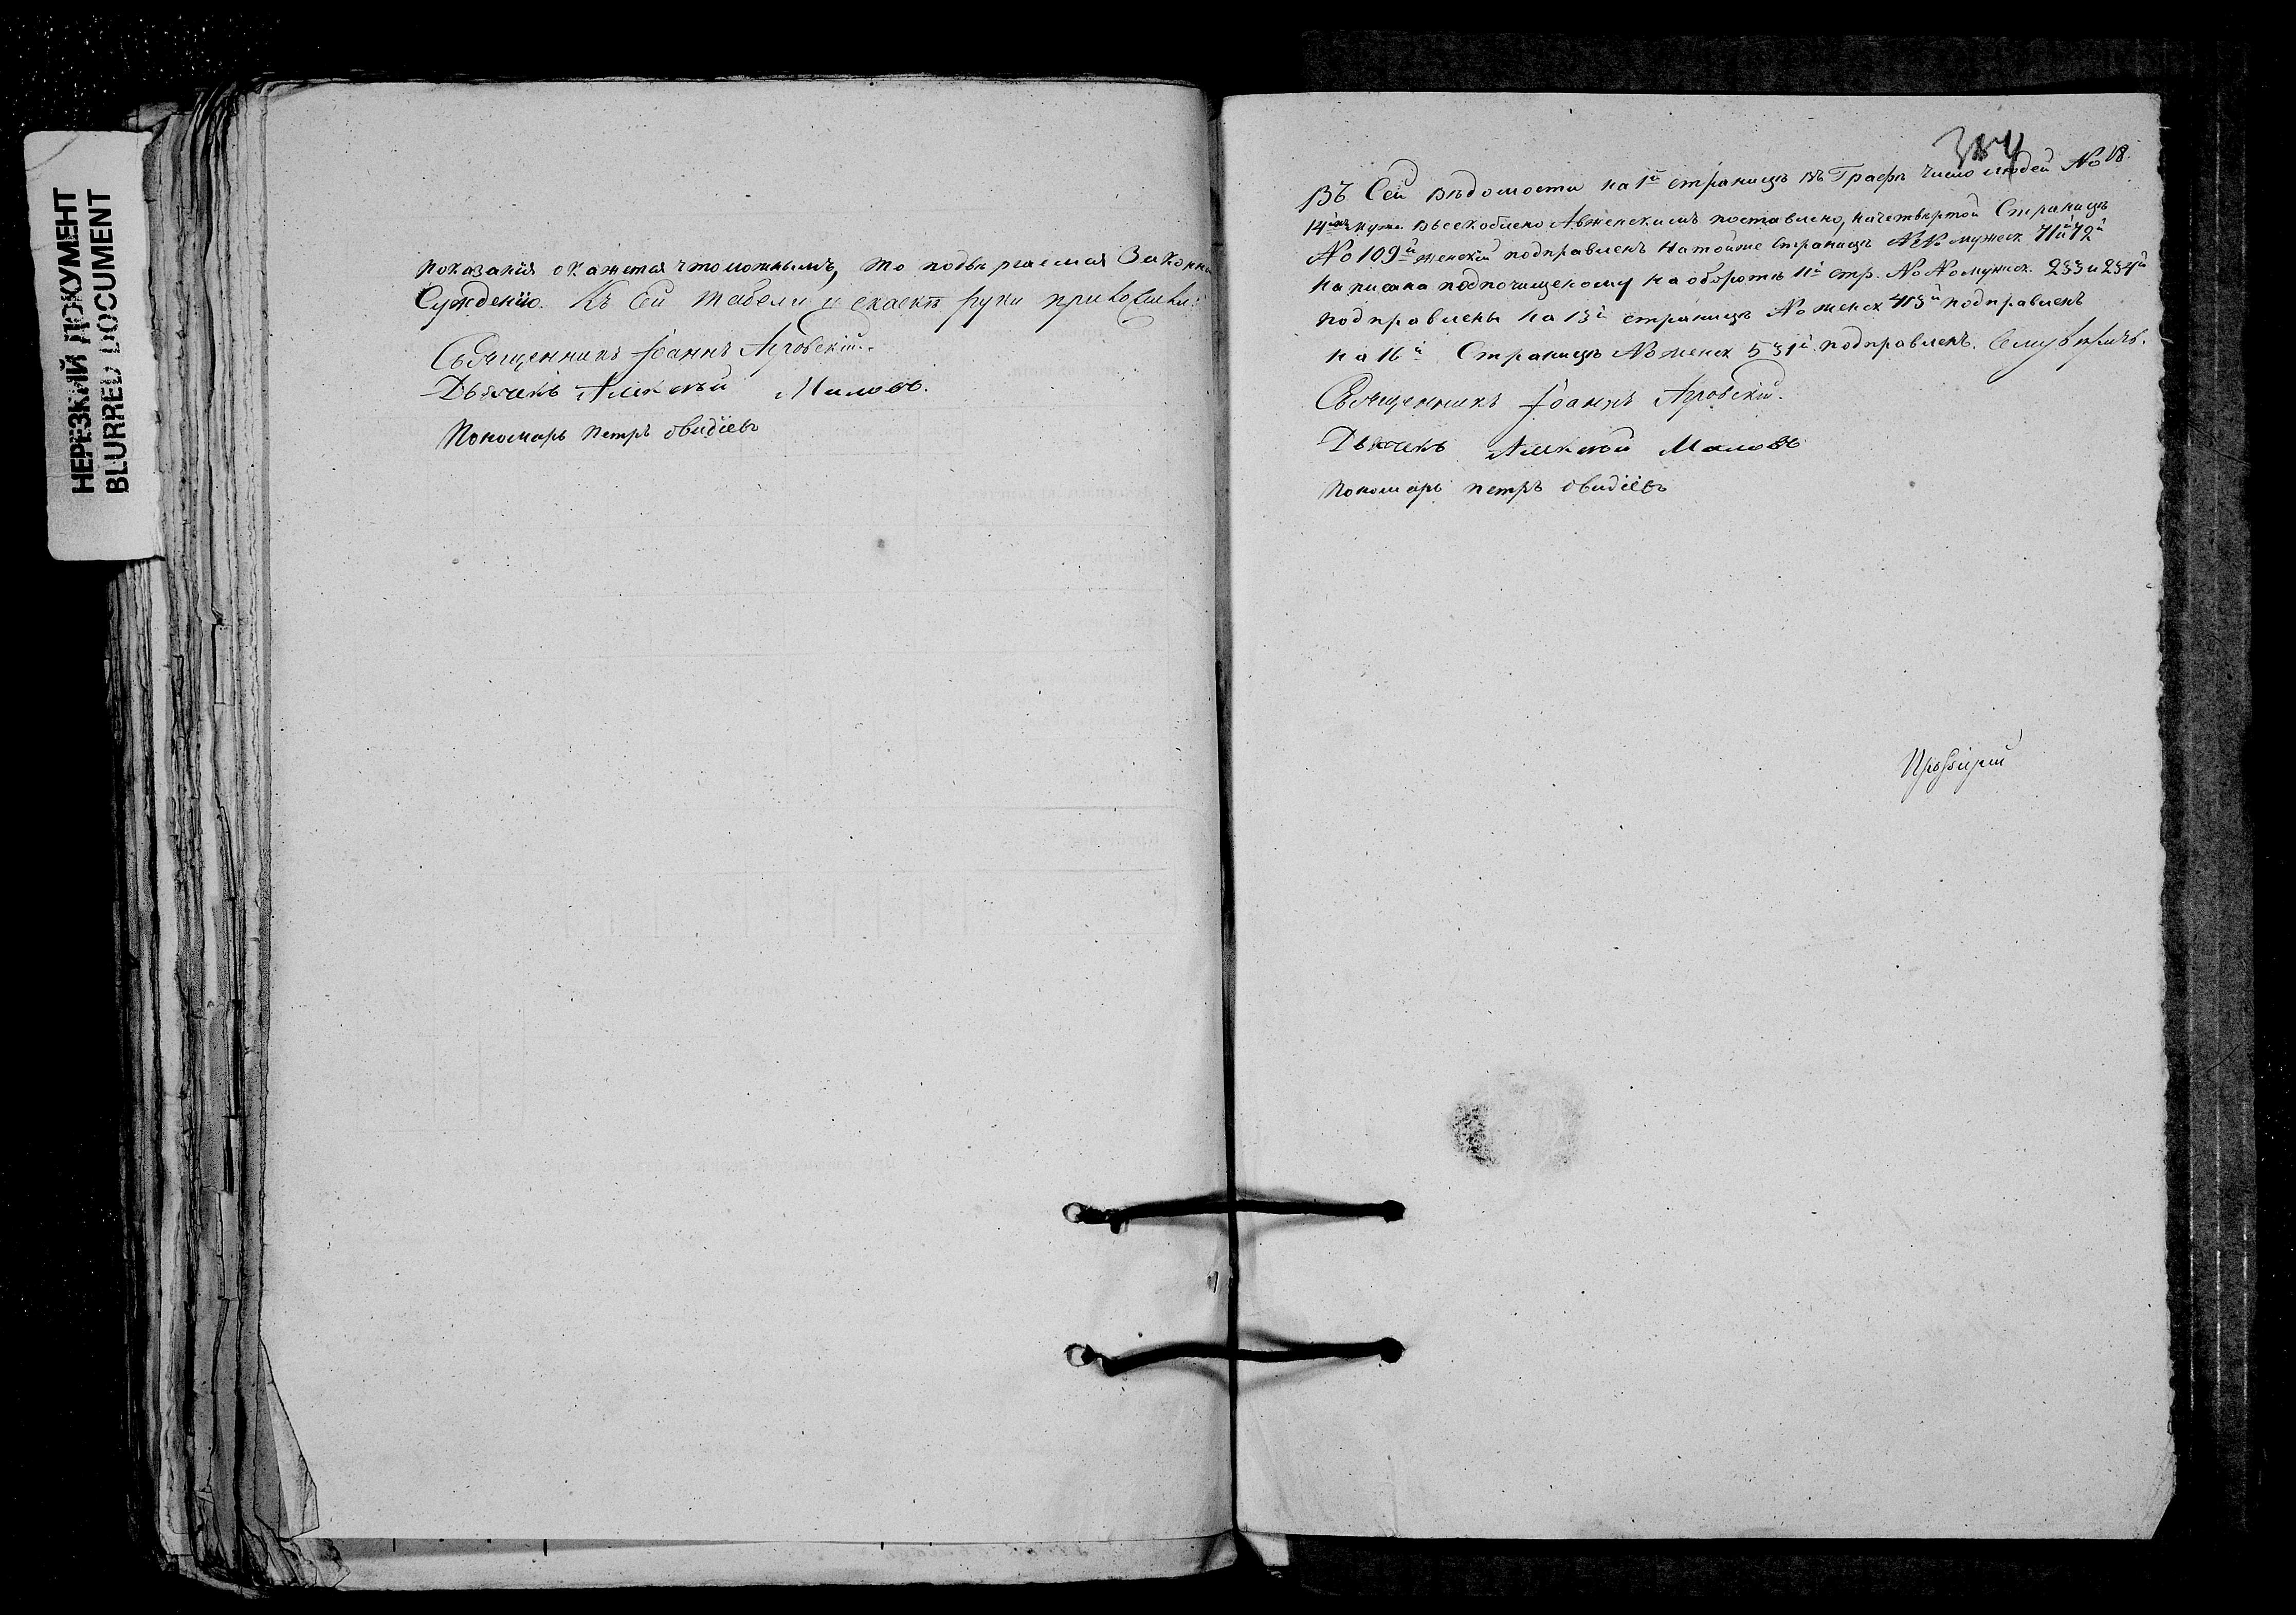 НЕРЕЗКИЙ ДОКУМЕНТ
BLURRED DOCUMENT
показанія окажется что ложнымъ, то подвергаемся Законно
Сужденію. Къ сей табели и скаскѣ руки приложили:
Священникъ Іоаннъ
Дьячекъ Алексѣй
Пономарь Петръ Овидіевъ
384
Въ Сей вѣдомости на 1й страницѣ въ Графѣ число людей № 18.
14 муж. выскоблено А женскимъ поставлено, на четвертой Страницѣ
№ 109й женскій подправленъ на тойже Страницѣ №№ мужеск 71й 72й
написана подчищеному на оборотѣ 11й стр. №№ мужеск. 233 и 234й
подправлены на 13й страницѣ № женск 413й подправленъ
на 16й Страницѣ № женск 531й подправленъ.
Священникъ Іоаннъ
Дьячекъ Алексѣй Маловъ
Пономарь Петръ Овидіевъ